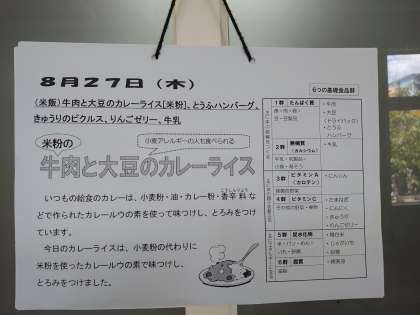 8月27日（木）
（米飯）牛肉と大豆のカレーライス[米粉]、とうふハンバーグ、
きゅうりのピクルス、りんごゼリー、牛乳
小麦アレルギーの人も食べられる
米粉の
牛肉と大豆のカレーライス
いつもの給食のカレーは、小麦粉・油・カレー粉・香辛料な
どで作られたカレールウの素を使って味つけし、とろみをつけ
ています。
今日のカレーライスは、小麦粉の代わりに
米粉を使ったカレールウの素で味つけし、
とろみをつけました。
6つの基礎食品群
1群 たんぱく質
・牛肉
・大豆
（ドライパック）
・とうふ
ハンバーグ
2群 無機質
（カルシウム）
・牛乳
3群 ビタミンA
（カロテン）
・にんじん
4群 ビタミンC
・たまねぎ
・にんにく
・きゅうり
・りんごゼリー
5群 炭水化物
・精白米
・じゃがいも
・砂糖
6群 脂質